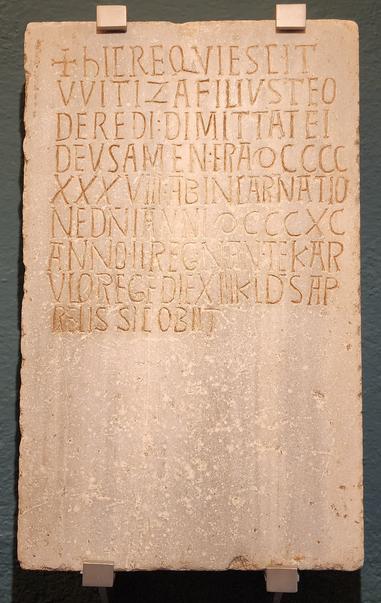 + hIC REQVIESCIT
VVITIZA FILIVS TEO
DEREDI: DIMITTAT EI
DEVS AMEN: ERA DCCCC
XXXVIII: AB INCARNATIO
NE DNI ANNI DCCCXC
ANNO II REGNANTE KAR
VLO REGE DIE XIII KLDS AP
RELIS SIC OBIIT